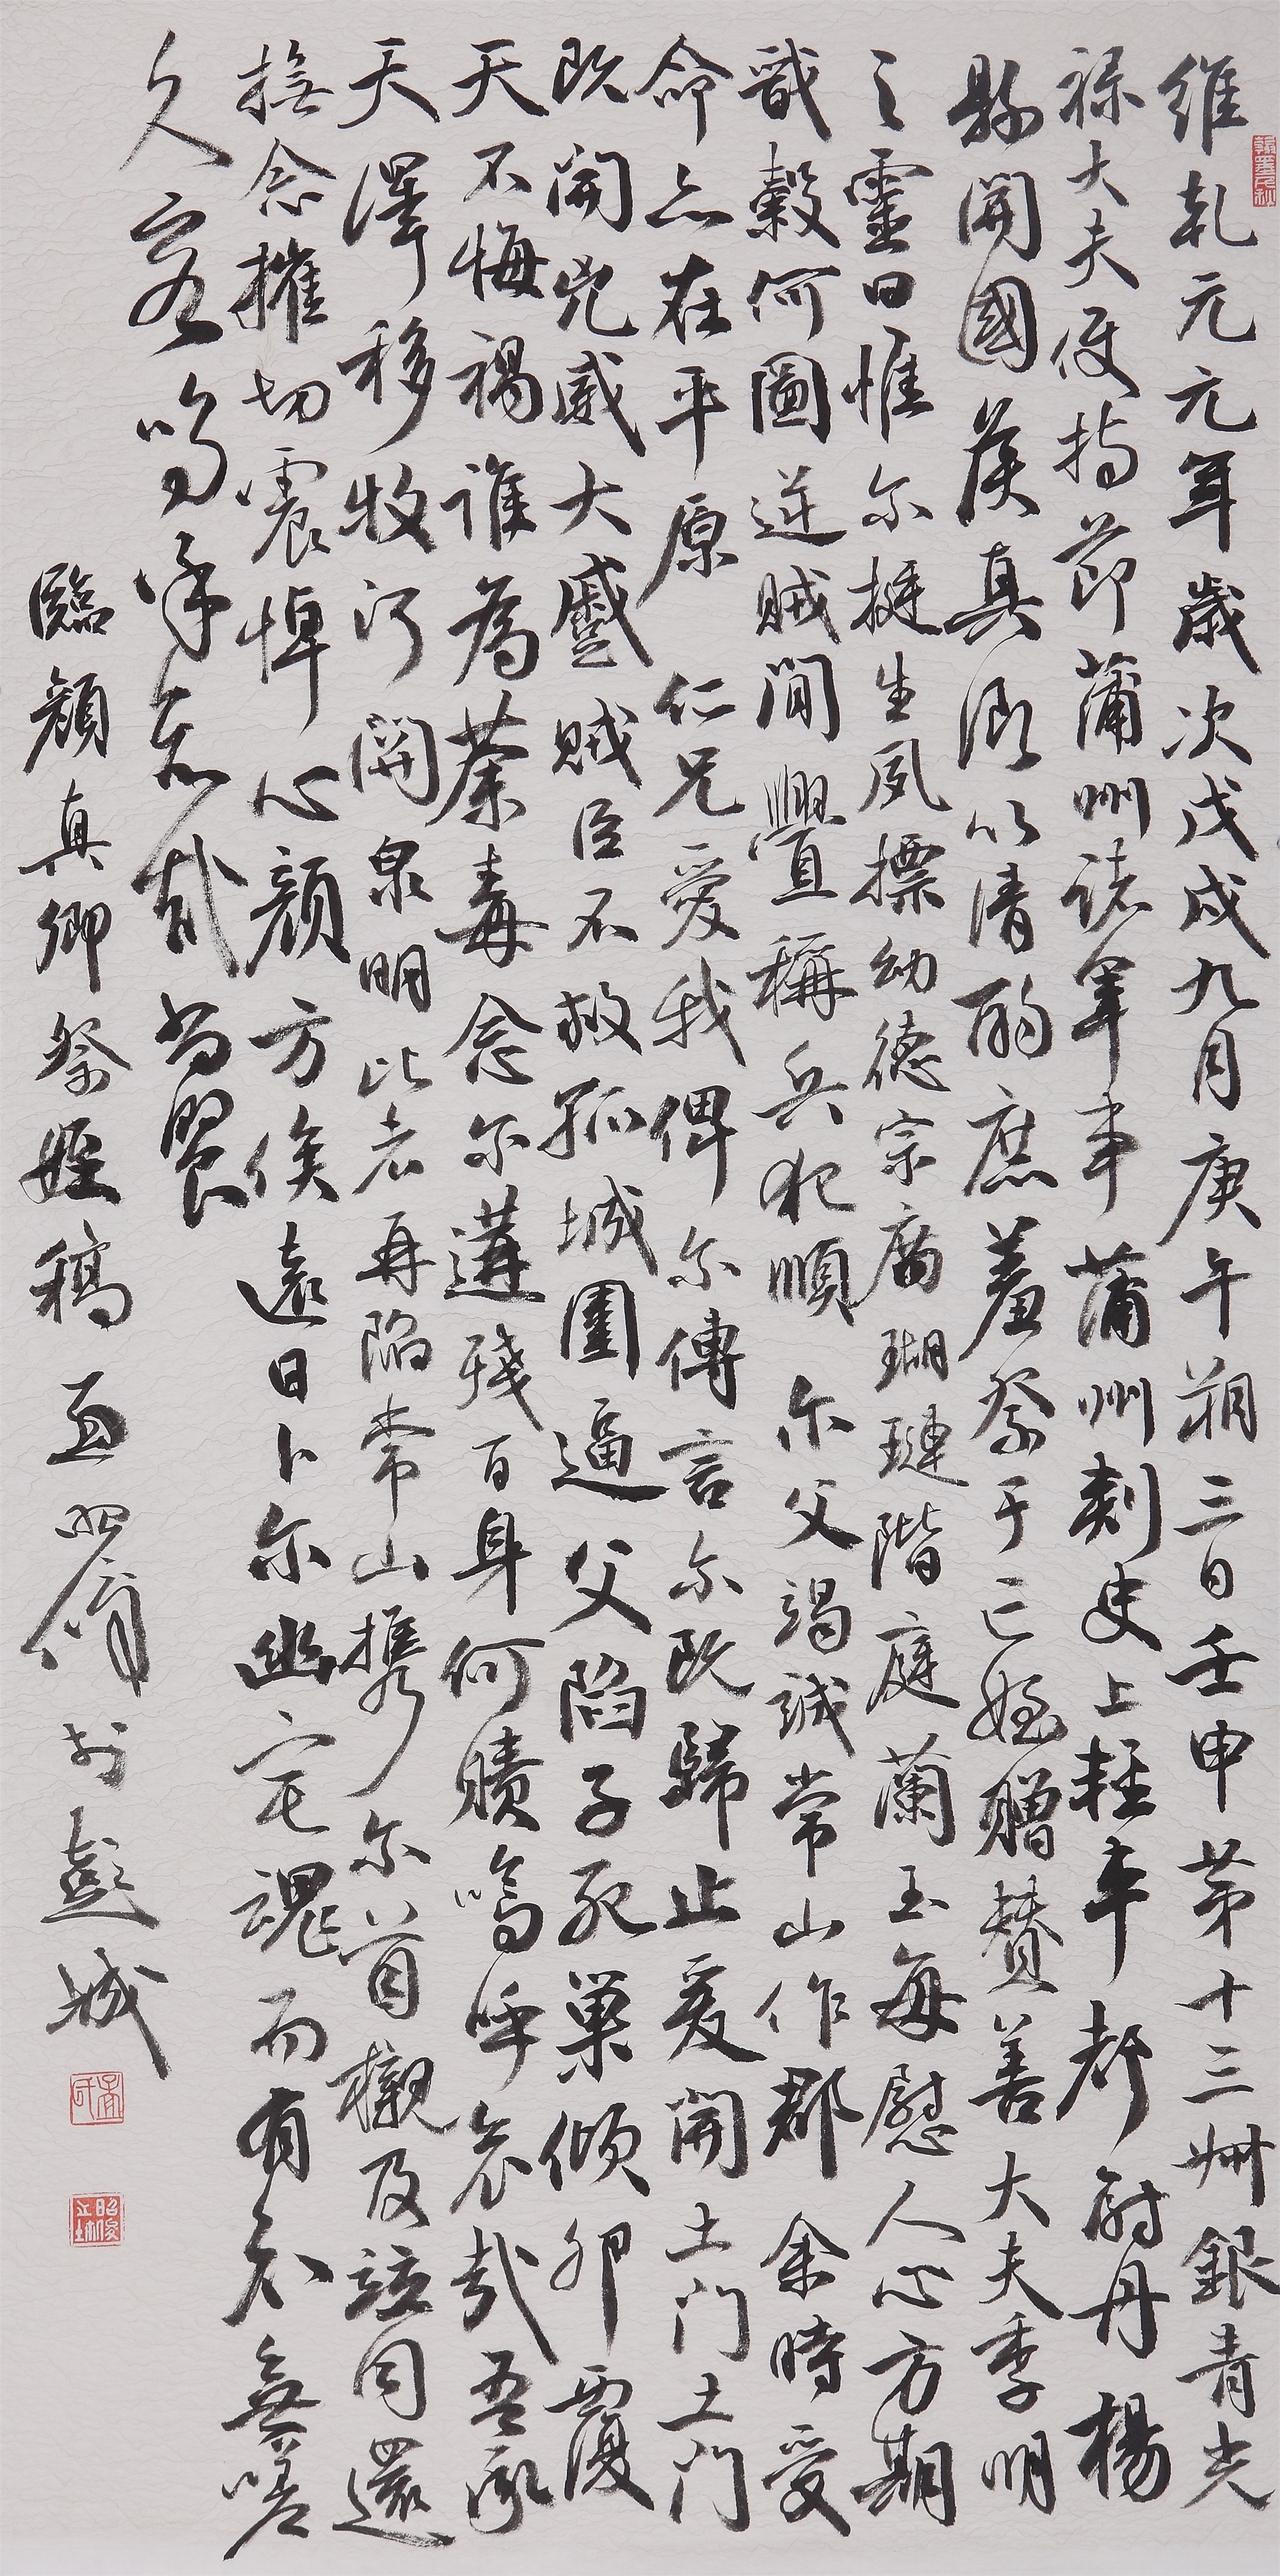 維乾元元年歲次戊戌九月庚午朔三日壬申第十三銀青光
祿大夫使持節蒲州諸軍事蒲州刺史上輕車都尉丹楊
縣開國侯真卿以清酌庶羞祭于亡姪贈贊善大夫季明
之靈曰惟尔挺生夙標幼德宗廟瑚璉階庭蘭玉每慰人心方期
戩穀何圖逆賊閒釁稱兵犯順尔父竭誠常山作郡余時受
命亦在平原仁兄愛我俾尔傳言尔既歸止爰開土門土門
既開兇威大蹙賊臣不救孤城圍逼父陷子死巢傾卵覆
天不悔禍誰為荼毒念尔遘殘百身何贖嗚呼哀哉吾承
天澤移牧河關泉明比者再陷常山攜尔首櫬及茲同還
撫念摧切震悼心顏方俟遠日卜尔幽宅魂而有知無嗟
久客嗚呼哀哉尚饗
臨顏真卿祭姪稿孟昭俊於彭城